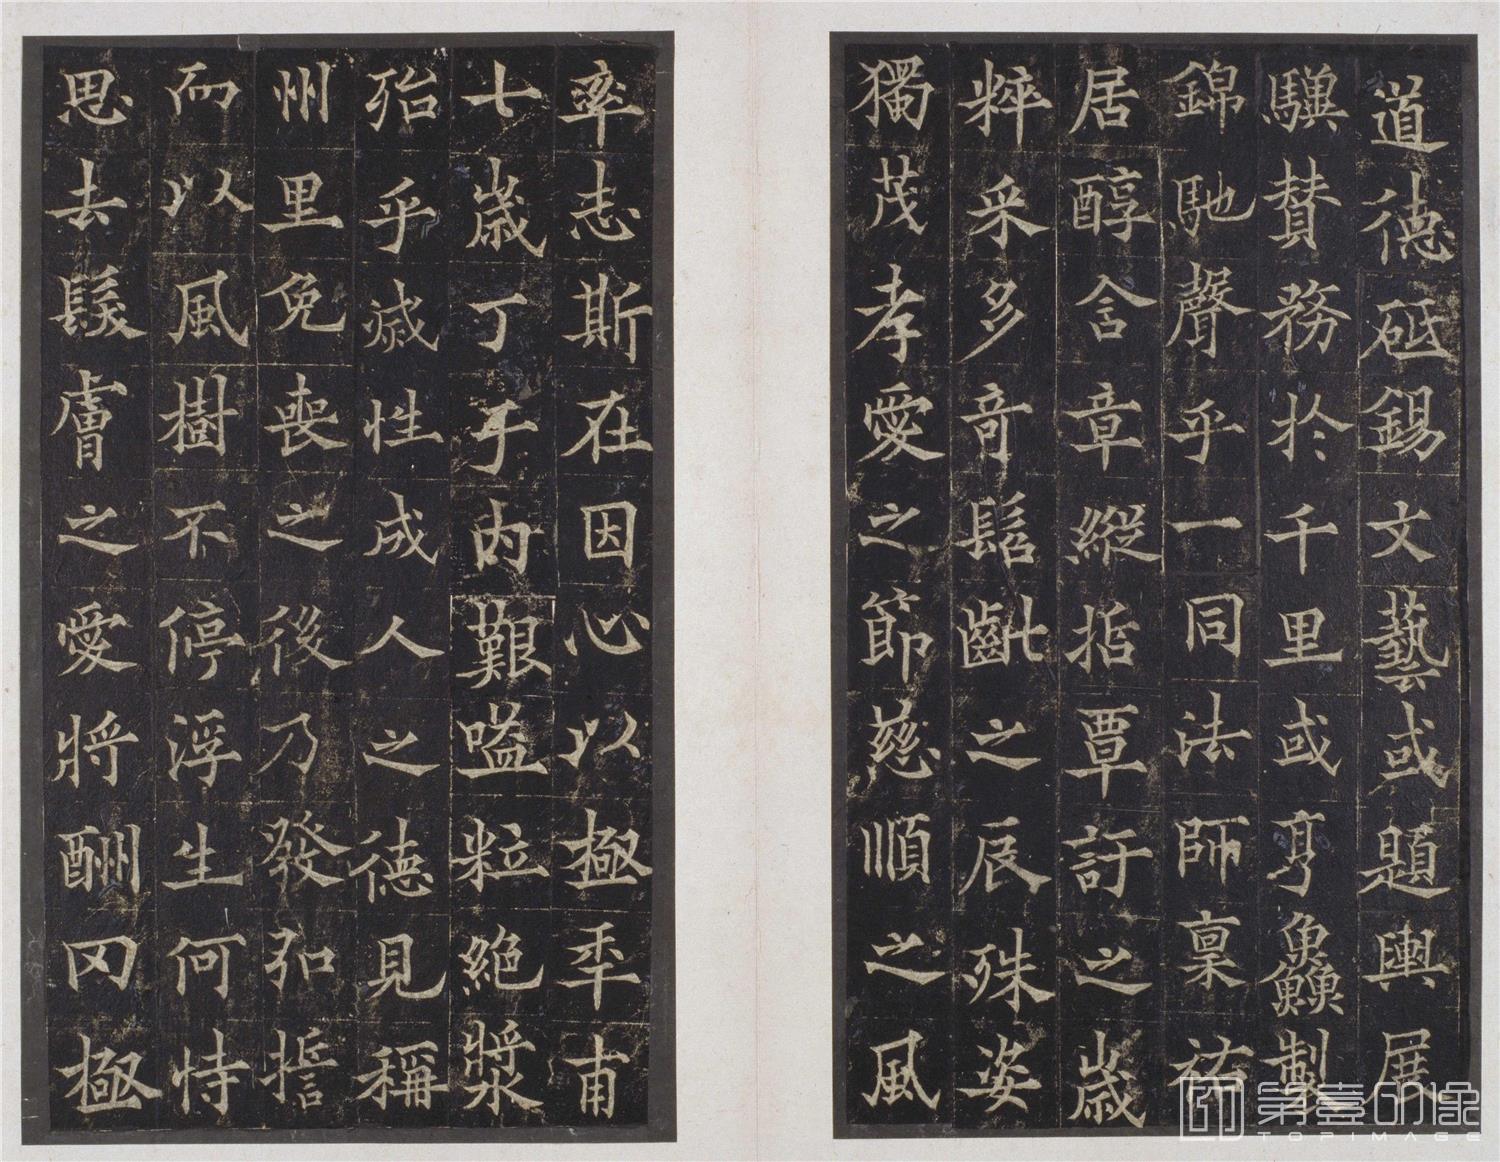 道德砥錫文藝或題輿展
驥贊務於千里或亨鱻製
錦馳聲乎一同法師稟祐
居醇含章縱哲覃訏之歲
粹采多奇髫齔之辰殊姿
獨茂孝愛之節慈順之風
率志斯在因心以極年甫
七歲丁乎內艱嗌粒絕漿
殆乎滅性成人之德見稱
州里免喪之後乃發弘誓
而以風樹不停浮生何恃
思去髮膚之愛將酬罔極
第壹印像
TOPIMAGE